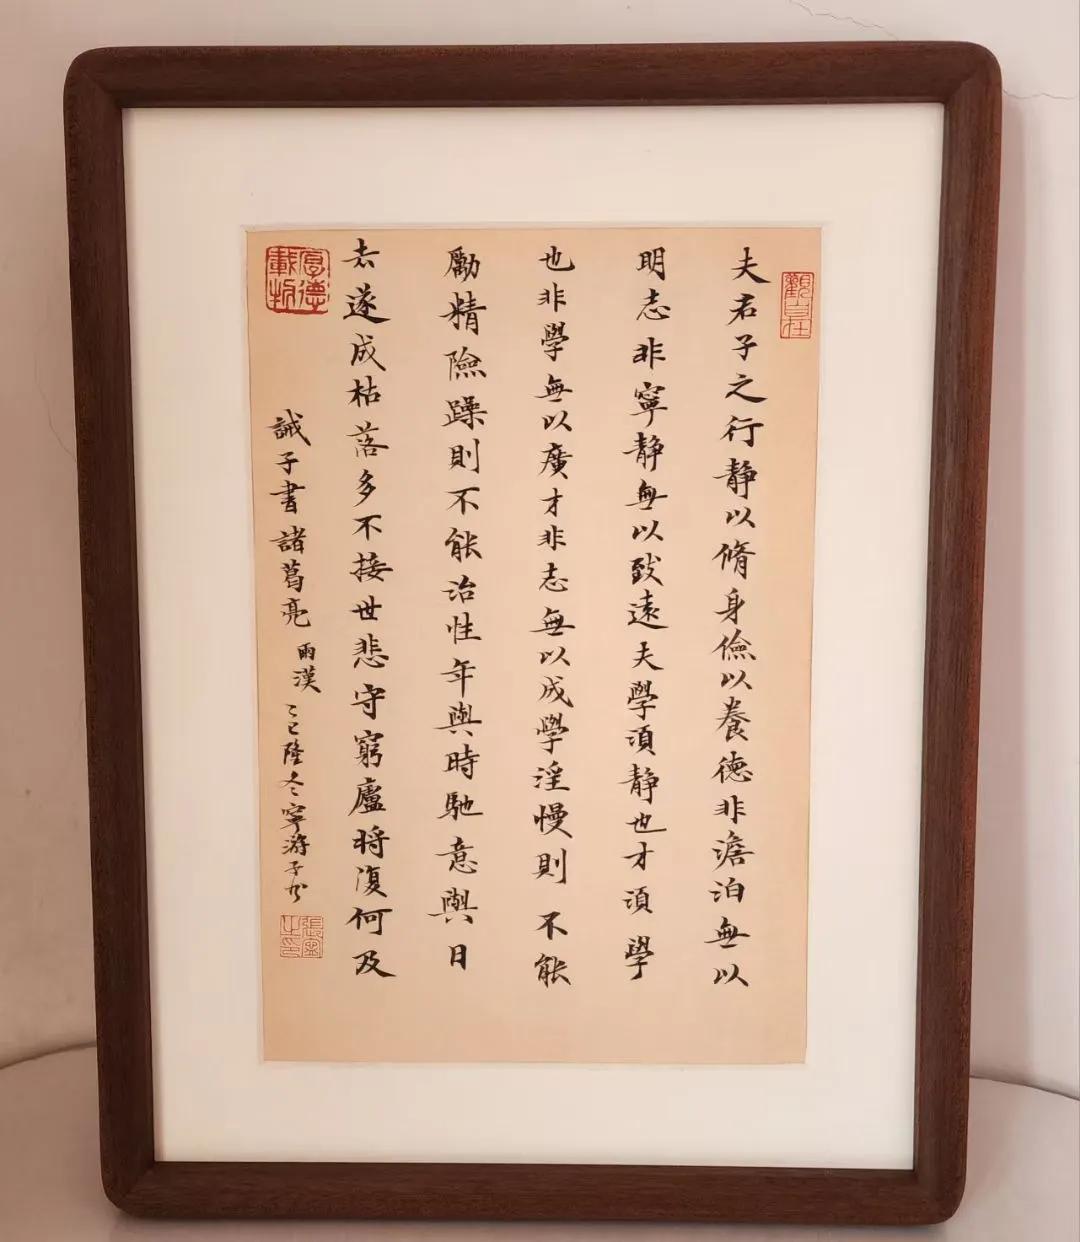 觀自在
夫君子之行靜以脩身儉以養德非澹泊無以
明志非寧靜無以致遠夫學須靜也才須學
也非學無以廣才非志無以成學淫慢則不能
勵精險躁則不能治性年與時馳意與日
去遂成枯落多不接世悲守窮廬將復何及
厚德載物
誡子書諸葛亮雨漢
乙巳隆冬寧游子書
之印